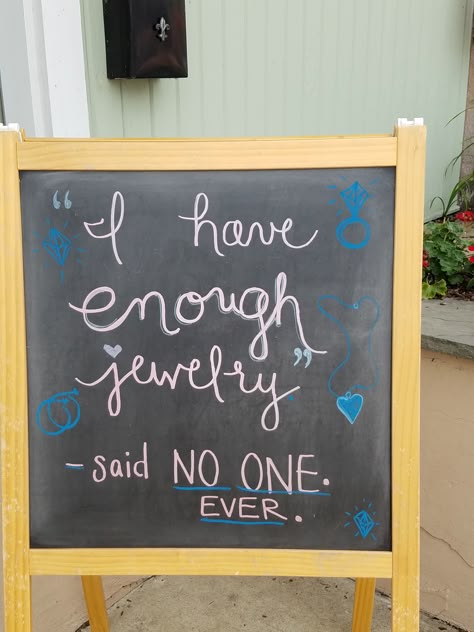 “I have
enough
jewelry”.
- said NO ONE.
EVER.